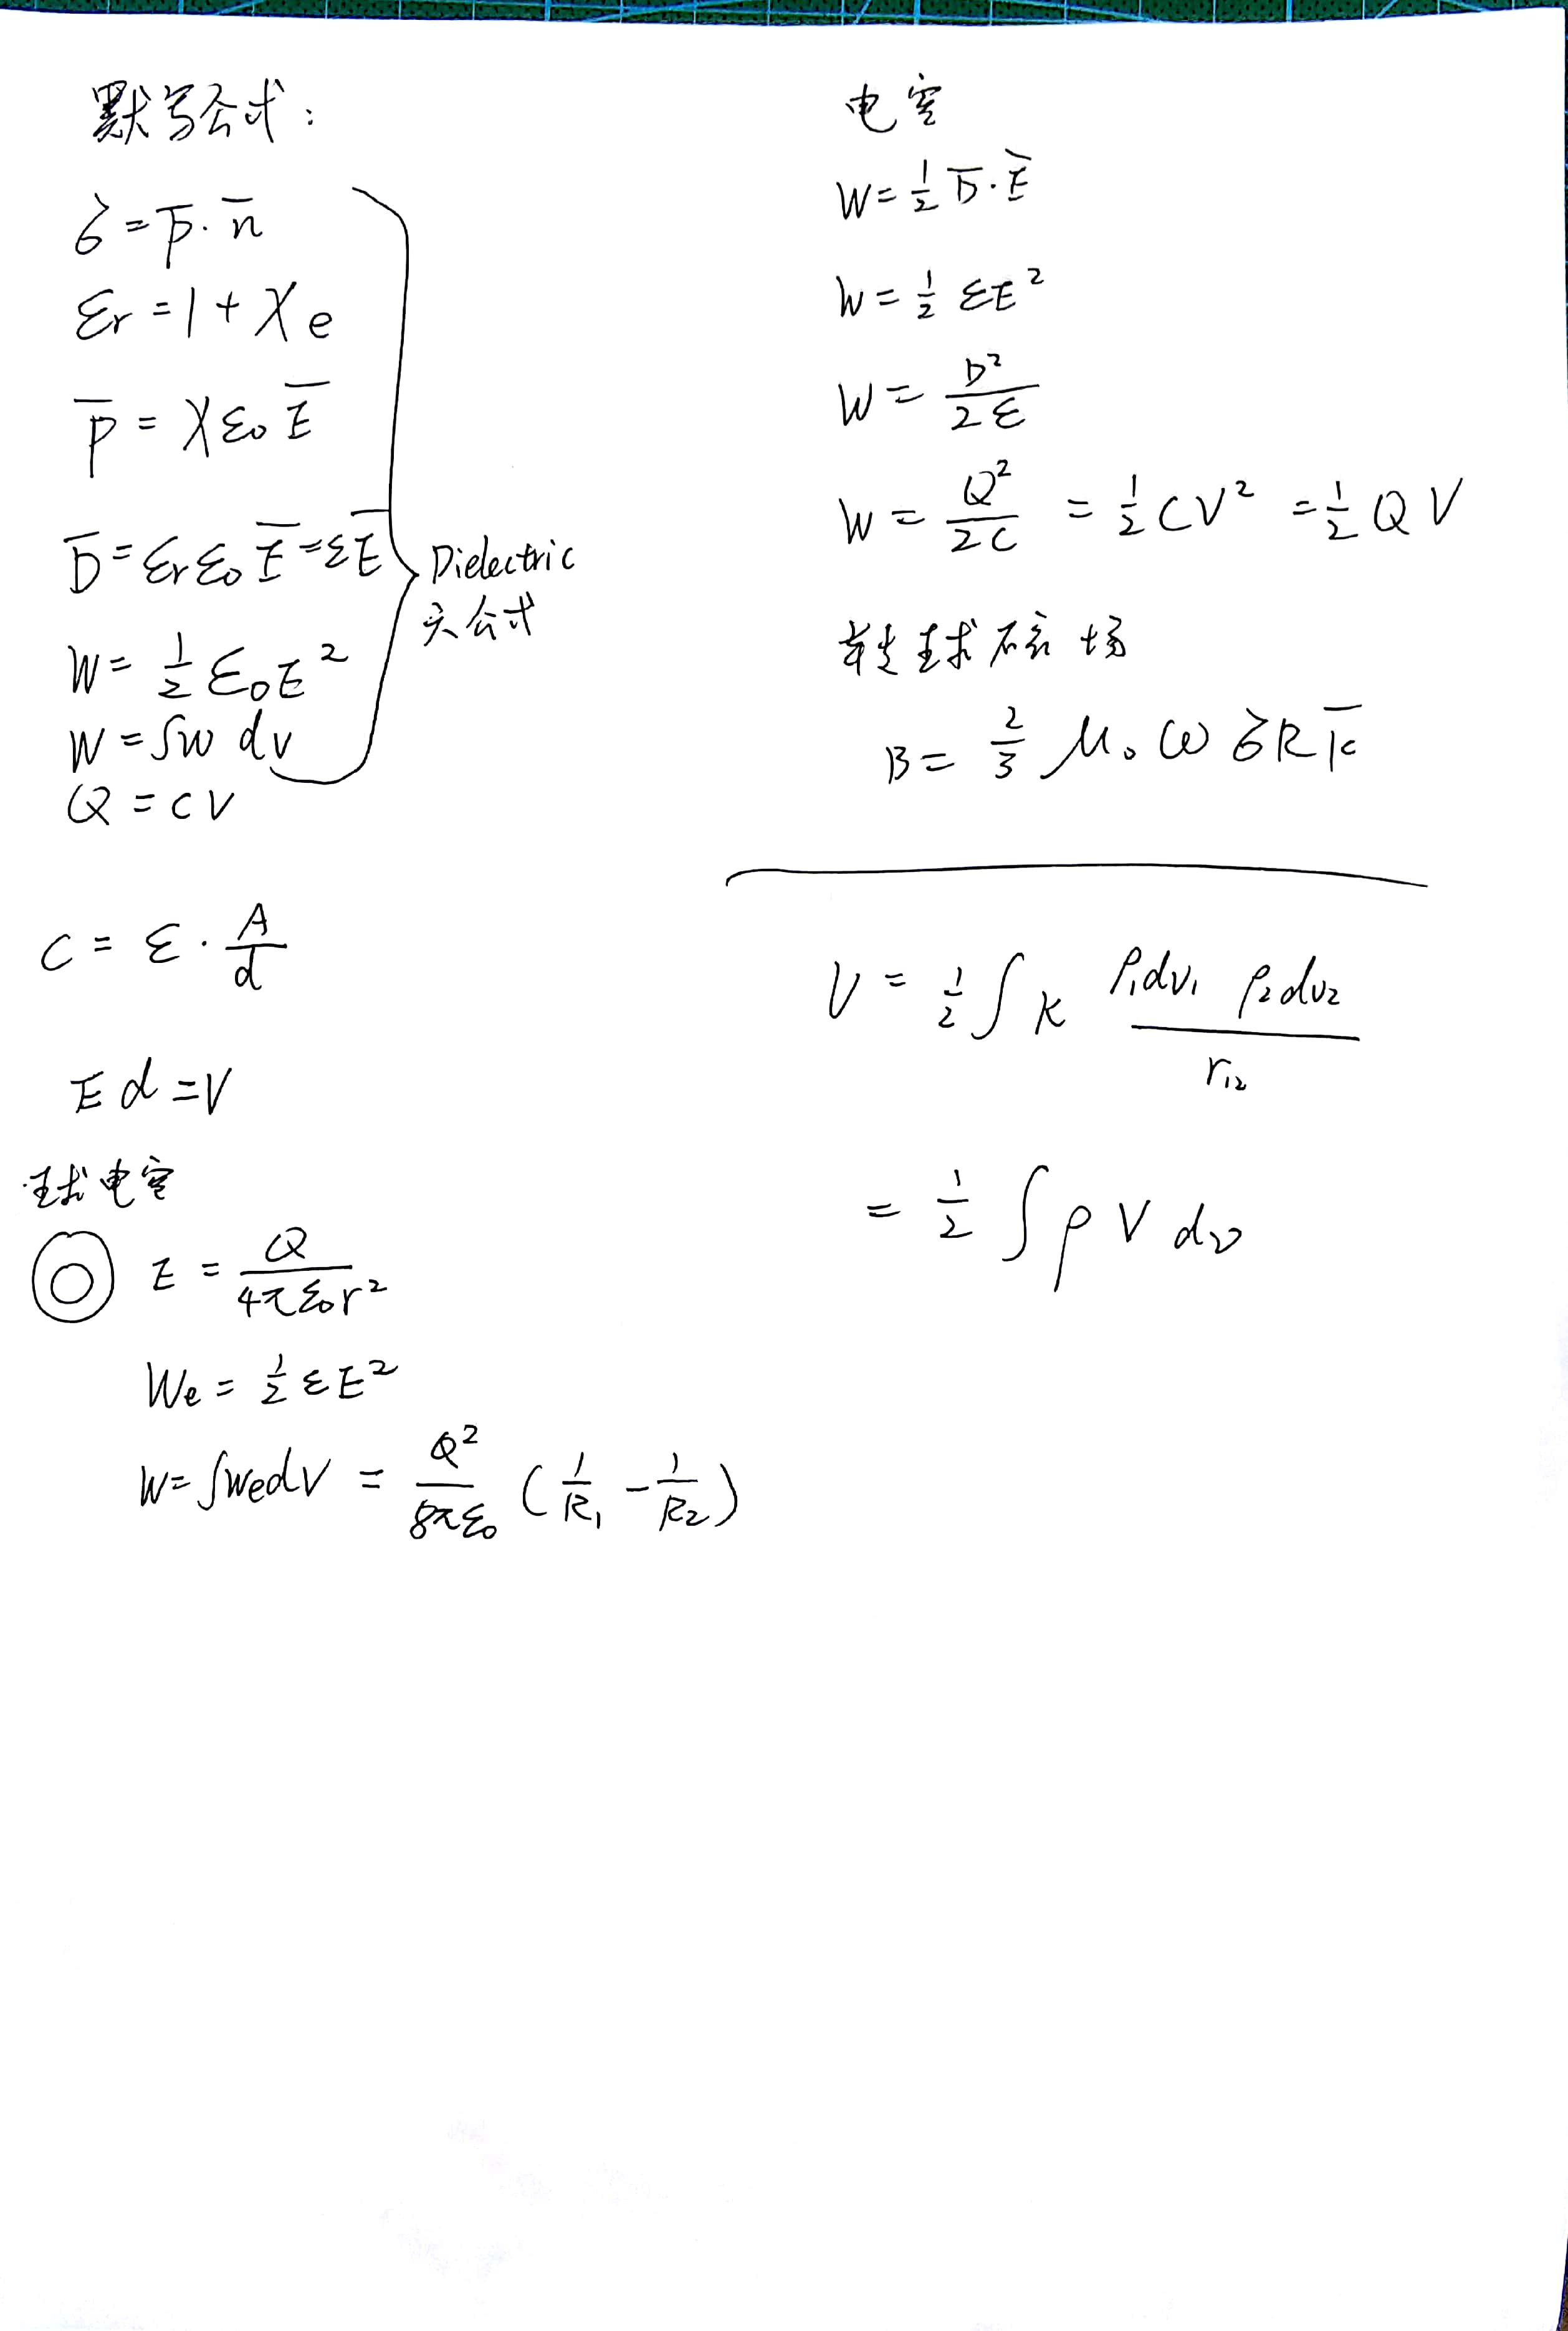 默写公式:
σ = P̅ · n̅
εr = 1 + χe
P̅ = χε₀E̅
D̅ = εrε₀E̅ = εE̅
Dielectric
六公式
W = ½ ε₀E²
W = ∫w dv
Q = CV
C = ε · A/d
Ed = V
球电容
E = Q/(4πε₀r²)
We = ½ εE²
W = ∫We dV = Q²/(8πε₀) (1/R₁ - 1/R₂)
电容
W = ½ D̅ · E̅
W = ½ εE²
W = D²/(2ε)
W = Q²/(2C) = ½ CV² = ½ QV
转球磁场
B = ⅔ μ₀ωσR k̅
U = ½ ∫ k ρ₁dv₁ ρ₂dv₂ / r₁₂
= ½ ∫ ρ V dv